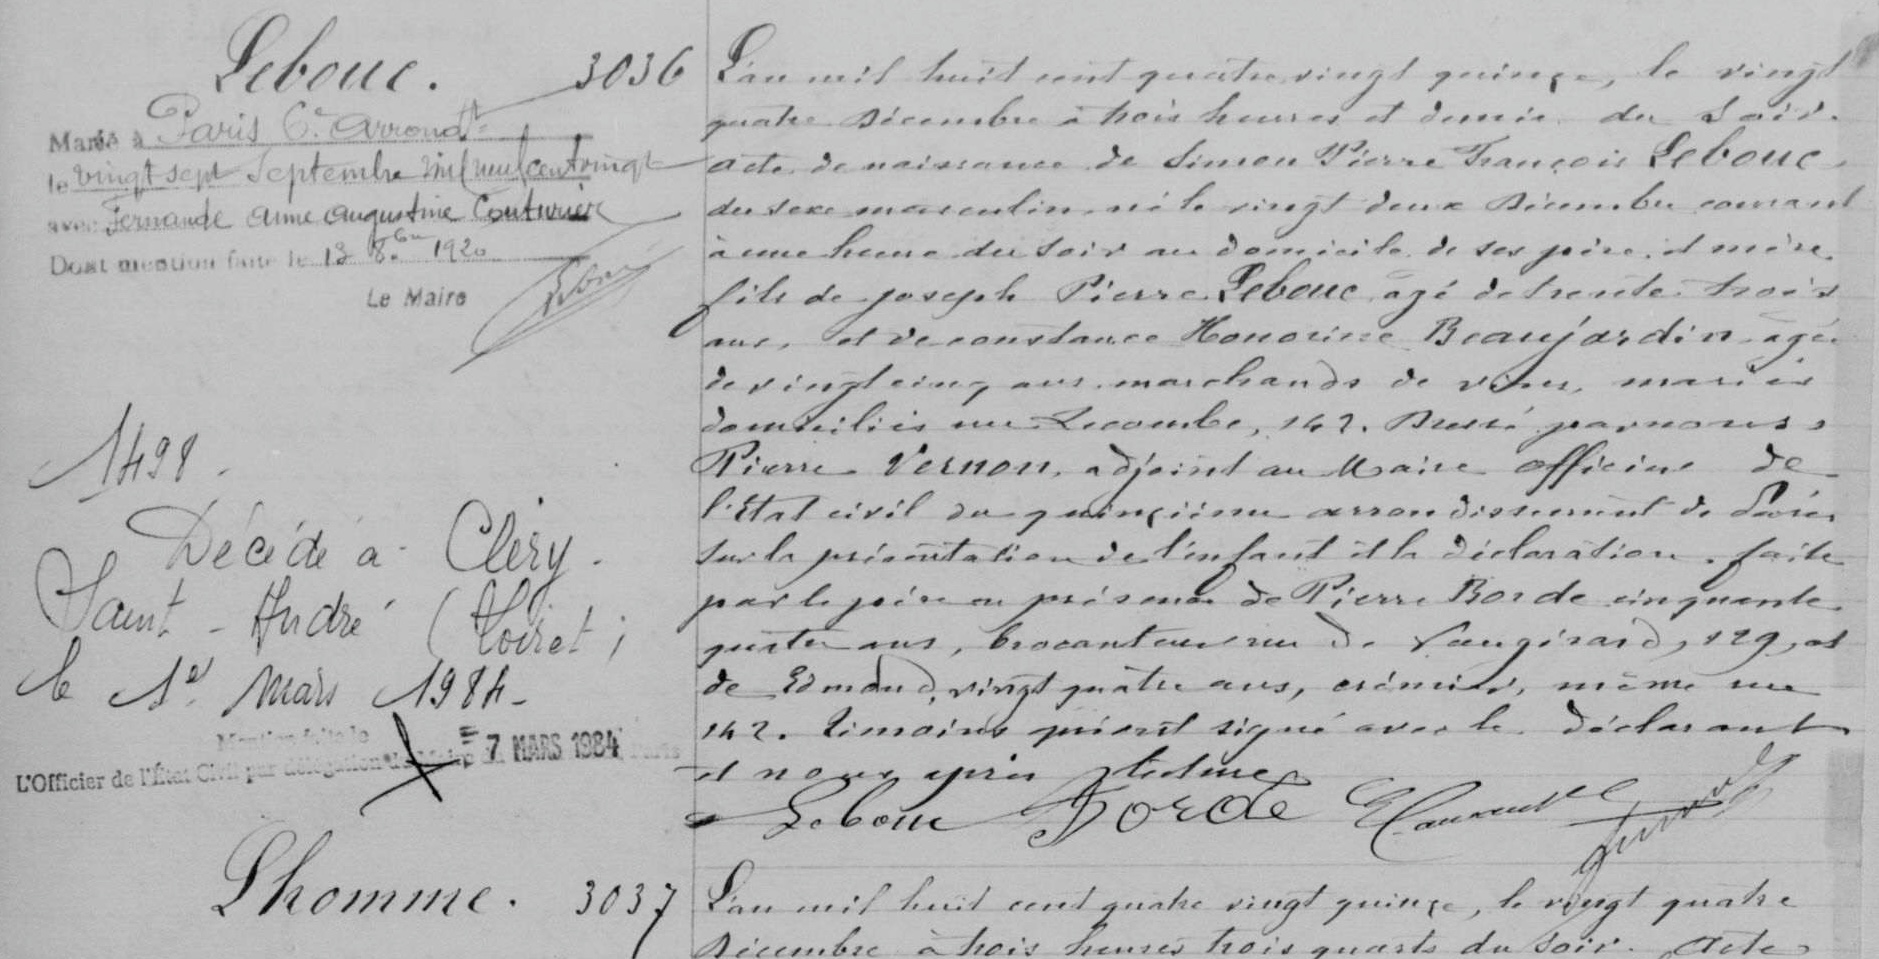 Lebouc. 3036
Marié à Paris 6e Arrondt
le vingt sept Septembre mil neuf cent vingt
avec Fernande Anne Augustine Couturier
Dont mention faite le 13 8bre 1920
Le Maire
1498.
Décédé à Cléry.
Saint-André (Loiret)
le 1er Mars 1984-
Mention faite le = 7 MARS 1984
L'Officier de l'État Civil par délégation du Maire Paris
L'an mil huit cent quatre vingt quinze, le vingt
quatre Décembre à trois heures et demie du Soir.
acte de naissance de Simon Pierre François Lebouc
du sexe masculin né le vingt deux Décembre courant
à une heure du soir au domicile de ses père et mère.
fils de Joseph Pierre Lebouc âgé de trente trois
ans, et de Constance Honorine Beaujardin âgée
de vingt cinq ans marchands de vins, mariés
domiciliés rue Lecombe, 142. Dressé par nous
Pierre Vernon, adjoint au Maire officier de
l'Etat civil du quinzième arrondissement de Paris
sur la présentation de l'enfant et la déclaration faite
par le père en présence de Pierre Borde cinquante
quatre ans, brocanteur rue de Vaugirard, 129, et
de Edmond, vingt quatre ans, crémier, même rue
142. témoins qui ont signé avec le déclarant
et nous après lecture
Lebouc Borde
Lhomme. 3037
L'an mil huit cent quatre vingt quinze, le vingt quatre
Décembre à trois heures trois quarts du soir. Acte